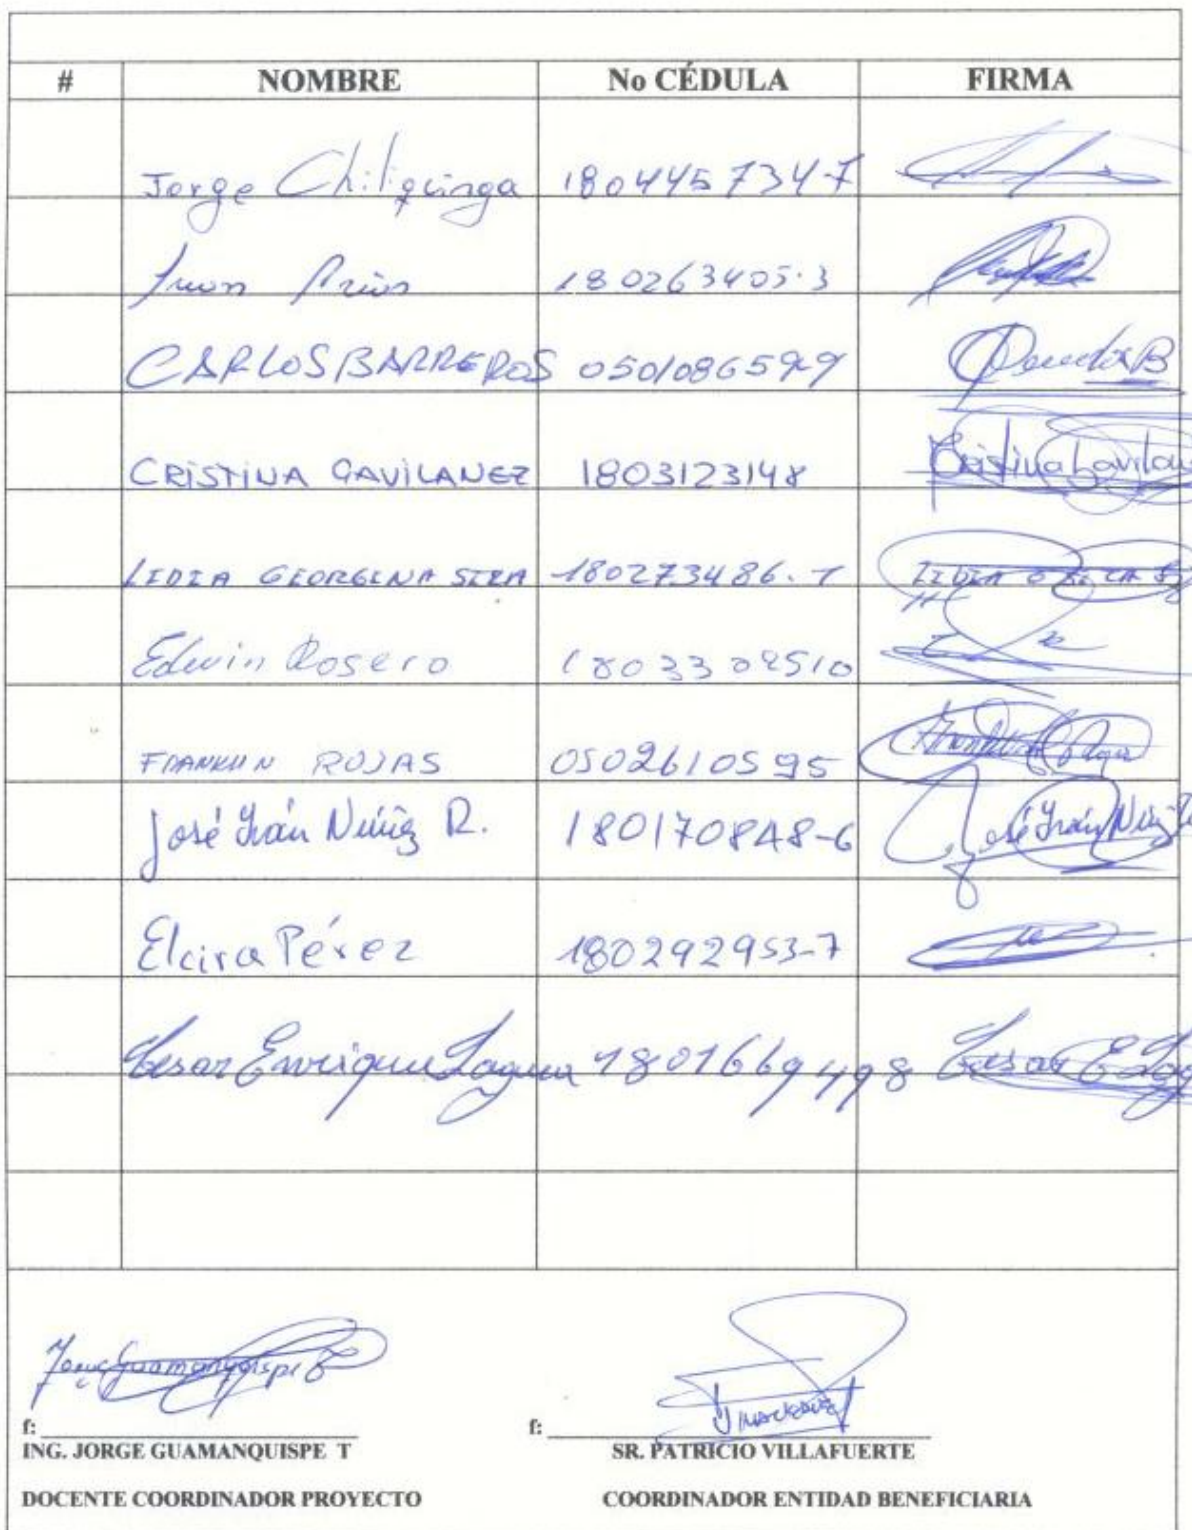 # NOMBRE No CÉDULA FIRMA
Jorge Chiliquinga 180445734-7
Juan 180263405-3
CARLOS BARREROS 050108659-9 B
CRISTINA GAVILANEZ 1803123148 Cristina Gavilanez
LIDIA GEORGINA 180273486-1 LIDIA
Edwin Rosero 1803309510
FRANKLIN ROJAS 0502610595
José Iván Núñez R. 180170848-6 José Iván Núñez R
Elcira Pérez 180292953-7
Cesar Enrique Laguna 1801669498 Cesar E Lag
Jorge Guamanquispe T
f: f:
ING. JORGE GUAMANQUISPE T SR. PATRICIO VILLAFUERTE
DOCENTE COORDINADOR PROYECTO COORDINADOR ENTIDAD BENEFICIARIA